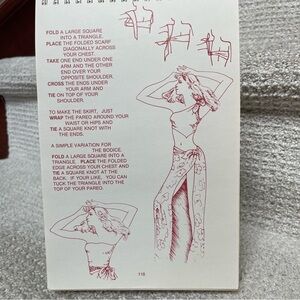 FOLD A LARGE SQUARE
INTO A TRIANGLE.
PLACE THE FOLDED SCARF
DIAGONALLY ACROSS
YOUR CHEST.
TAKE ONE END UNDER ONE
ARM AND THE OTHER
END OVER YOUR
OPPOSITE SHOULDER.
CROSS THE ENDS UNDER
YOUR ARM AND
TIE ON TOP OF YOUR
SHOULDER.
TO MAKE THE SKIRT, JUST
WRAP THE PAREO AROUND YOUR
WAIST OR HIPS AND
TIE A SQUARE KNOT WITH
THE ENDS.
A SIMPLE VARIATION FOR
THE BODICE.
FOLD A LARGE SQUARE INTO A
TRIANGLE. PLACE THE FOLDED
EDGE ACROSS YOUR CHEST AND
TIE A SQUARE KNOT AT THE
BACK. IF YOUR LIKE, YOU CAN
TUCK THE TRIANGLE INTO THE
TOP OF YOUR PAREO.
118